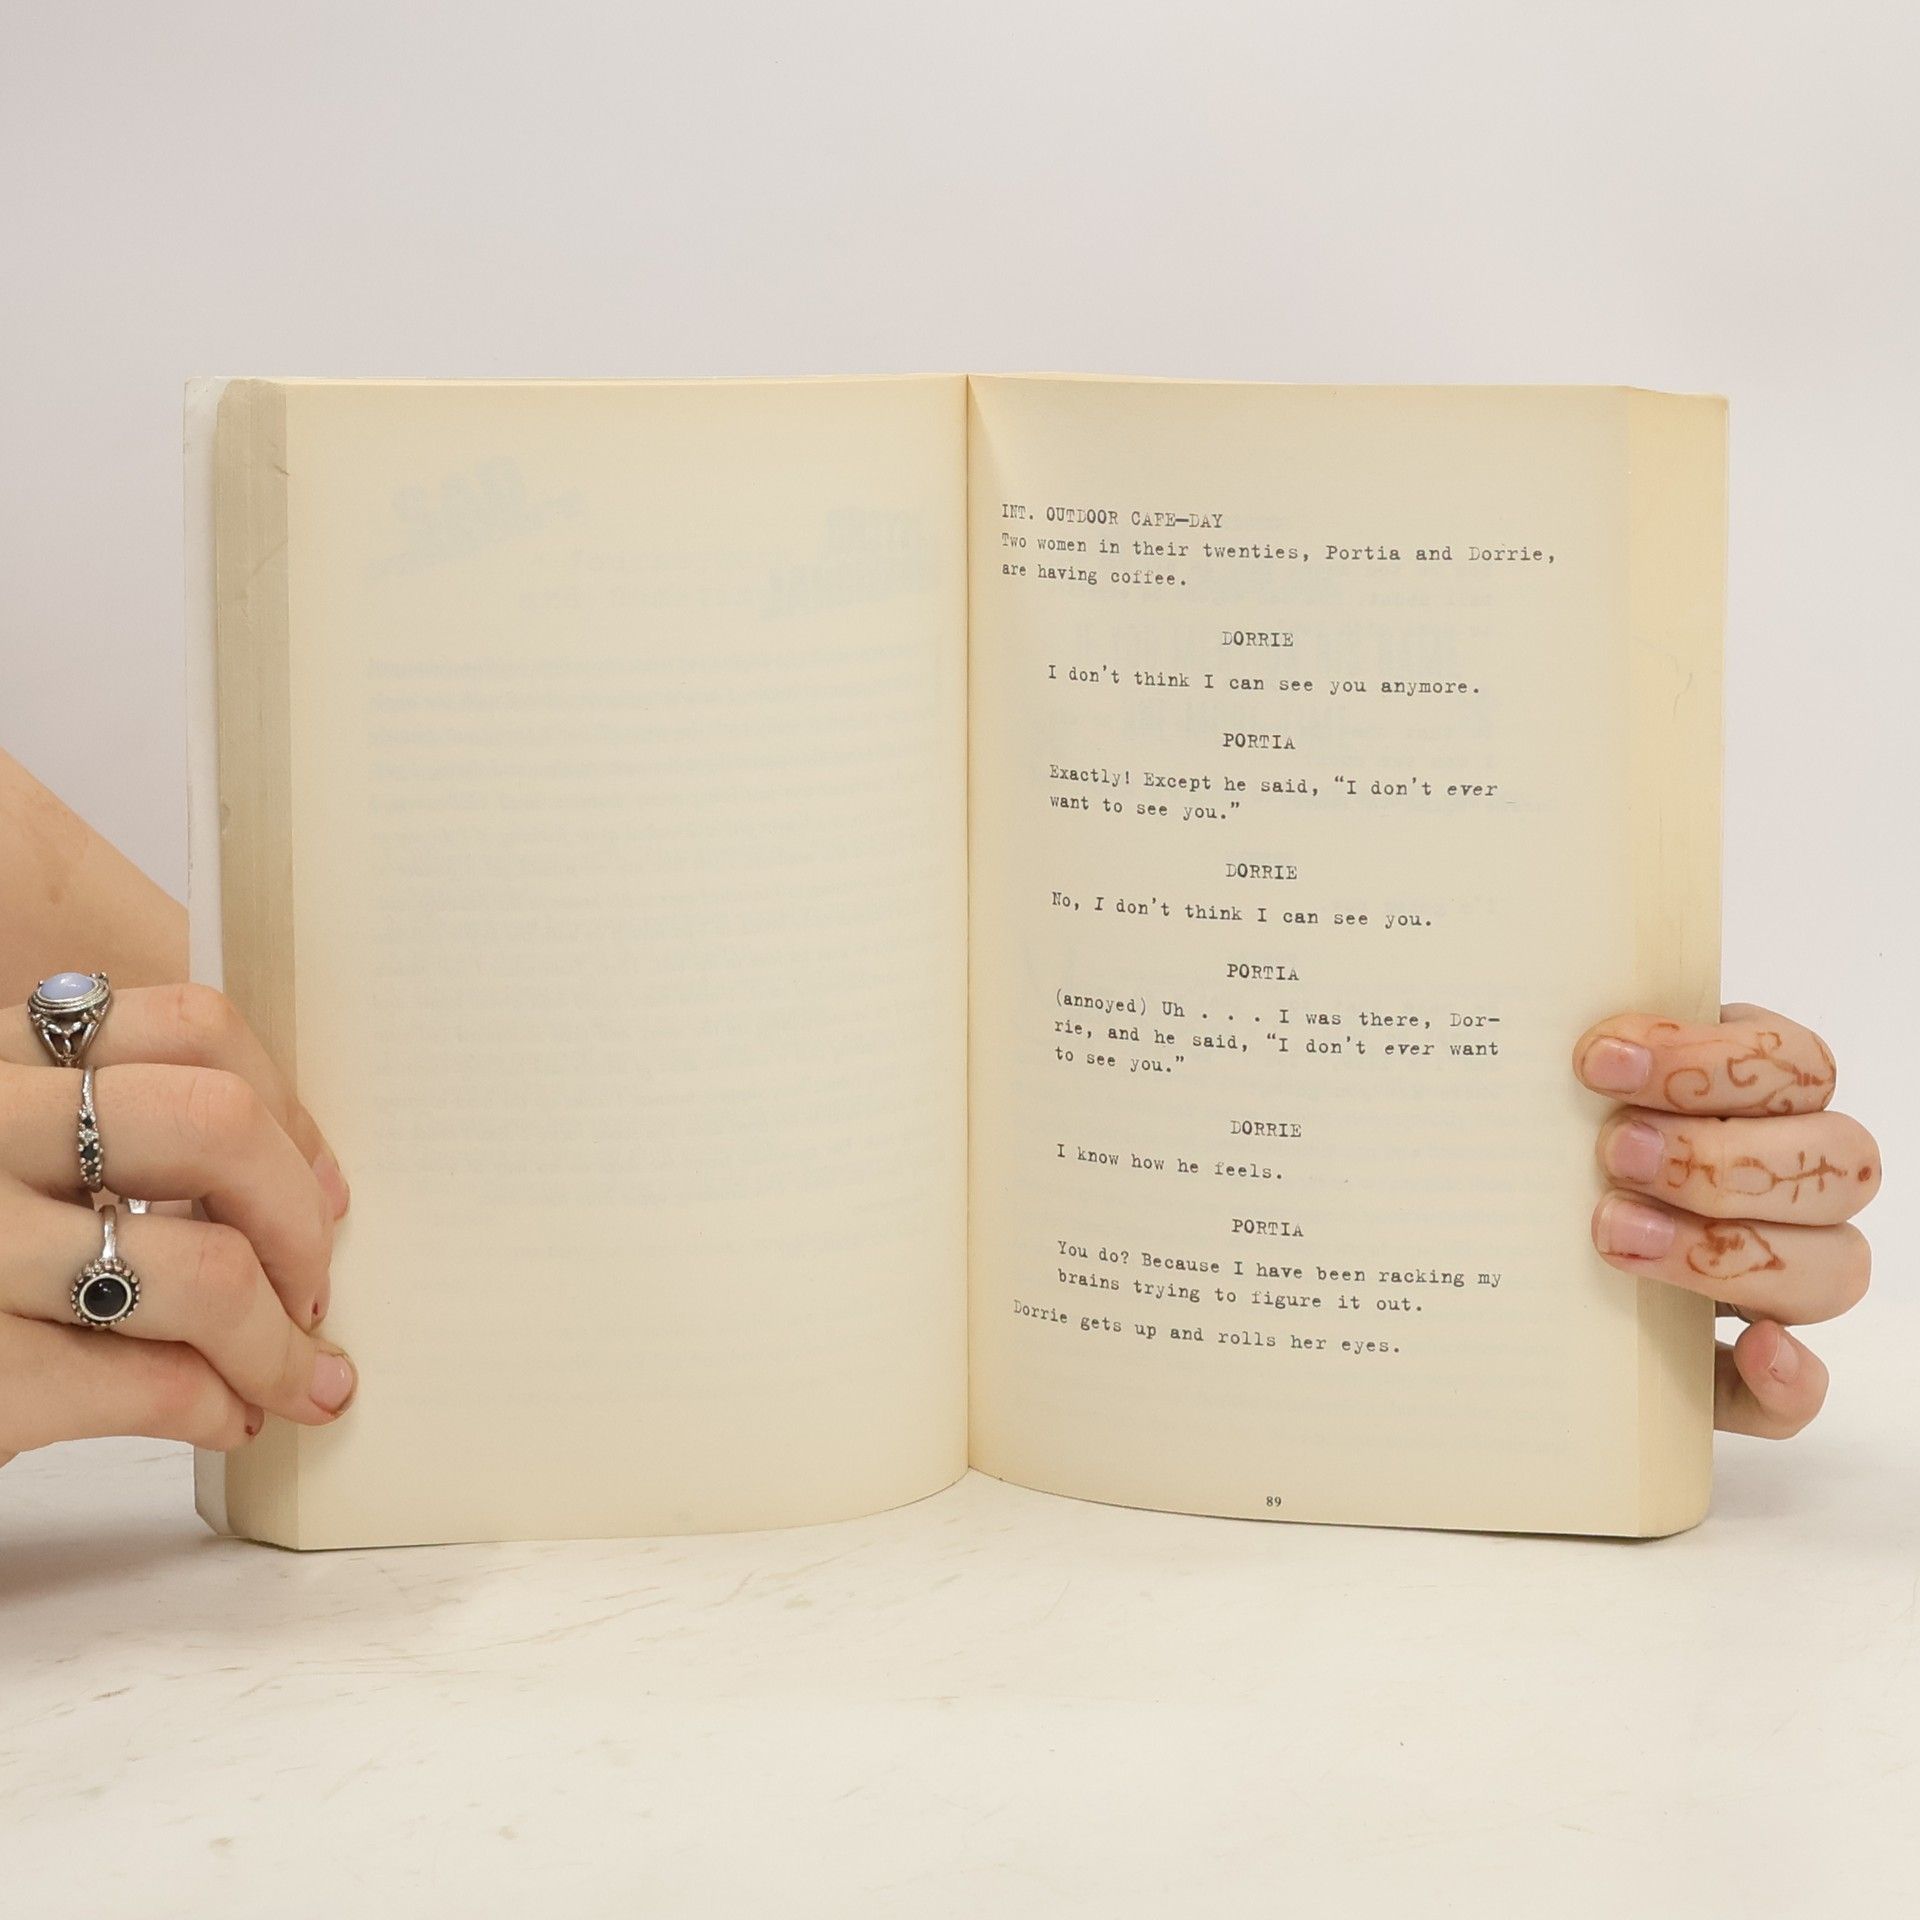 INT. OUTDOOR CAFE—DAY
Two women in their twenties, Portia and Dorrie,
are having coffee.
DORRIE
I don't think I can see you anymore.
PORTIA
Exactly! Except he said, “I don't ever
want to see you.”
DORRIE
No, I don't think I can see you.
PORTIA
(annoyed) Uh . . . I was there, Dor-
rie, and he said, “I don't ever want
to see you.”
DORRIE
I know how he feels.
PORTIA
You do? Because I have been racking my
brains trying to figure it out.
Dorrie gets up and rolls her eyes.
89